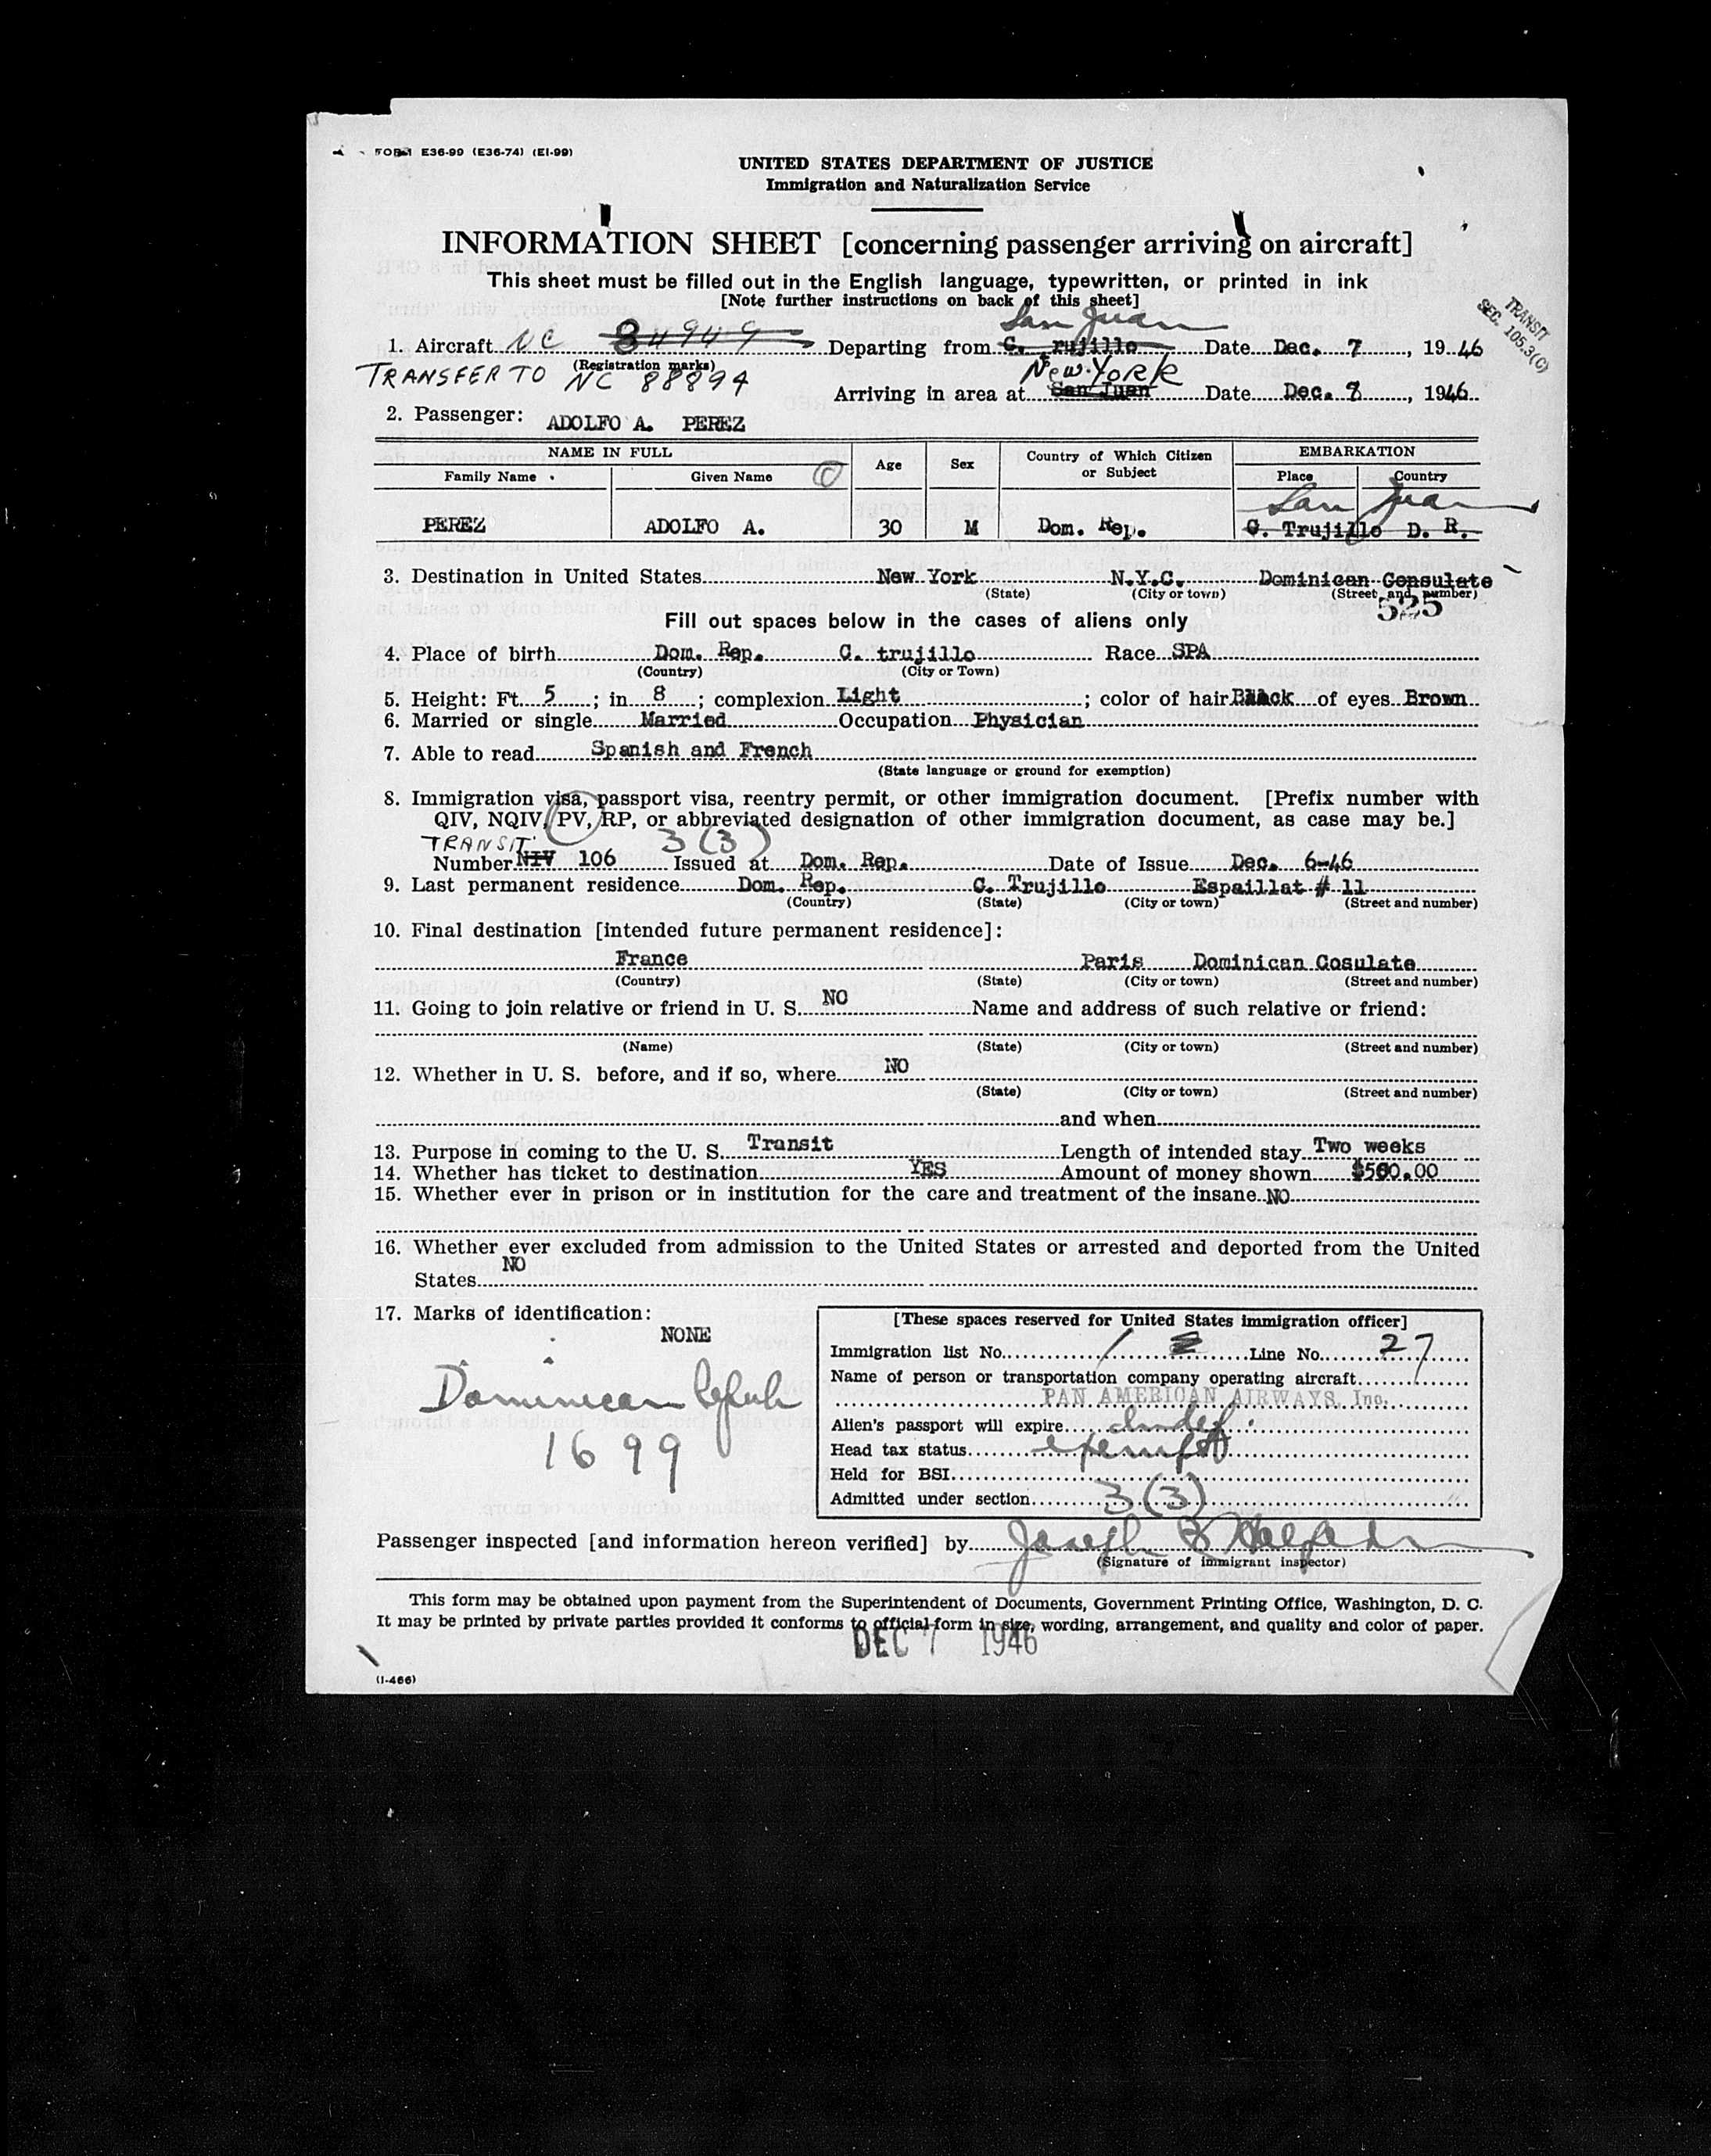 FORM E36-99 (E36-74) (EI-99)
UNITED STATES DEPARTMENT OF JUSTICE
Immigration and Naturalization Service
INFORMATION SHEET [concerning passenger arriving on aircraft]
This sheet must be filled out in the English language, typewritten, or printed in ink
[Note further instructions on back of this sheet]
TRANSIT
SEC. 105.3(C)
San Juan
1. Aircraft NC 84949 Departing from C. Trujillo Date Dec. 7, 1946
(Registration marks)
TRANSFER TO NC 88894
New York
Arriving in area at San Juan Date Dec. 7, 1946
2. Passenger: ADOLFO A. PEREZ
NAME IN FULL Age Sex Country of Which Citizen or Subject EMBARKATION
Family Name Given Name Place Country
San Juan
PEREZ ADOLFO A. 30 M Dom. Rep. C. Trujillo D. R.
3. Destination in United States New York N.Y.C. Dominican Consulate
(State) (City or town) (Street and number)
525
Fill out spaces below in the cases of aliens only
4. Place of birth Dom. Rep. C. trujillo Race SPA
(Country) (City or Town)
5. Height: Ft. 5; in 8; complexion Light; color of hair Black of eyes Brown
6. Married or single Married Occupation Physician
7. Able to read Spanish and French
(State language or ground for exemption)
8. Immigration visa, passport visa, reentry permit, or other immigration document. [Prefix number with
QIV, NQIV, PV, RP, or abbreviated designation of other immigration document, as case may be.]
TRANSIT 3(3)
Number NIV 106 Issued at Dom. Rep. Date of Issue Dec. 6-46
9. Last permanent residence Dom. Rep. C. Trujillo Espaillat # 11
(Country) (State) (City or town) (Street and number)
10. Final destination [intended future permanent residence]:
France Paris Dominican Cosulate
(Country) (State) (City or town) (Street and number)
11. Going to join relative or friend in U. S. NO Name and address of such relative or friend:
(Name) (State) (City or town) (Street and number)
12. Whether in U. S. before, and if so, where NO
(State) (City or town) (Street and number)
and when
13. Purpose in coming to the U. S. Transit Length of intended stay Two weeks
14. Whether has ticket to destination YES Amount of money shown $500.00
15. Whether ever in prison or in institution for the care and treatment of the insane NO
16. Whether ever excluded from admission to the United States or arrested and deported from the United
States NO
17. Marks of identification:
NONE
Dominican Repub
1699
[These spaces reserved for United States immigration officer]
Immigration list No. 1 Line No. 27
Name of person or transportation company operating aircraft
PAN AMERICAN AIRWAYS, Inc.
Alien's passport will expire indef.
Head tax status exempt
Held for BSI
Admitted under section 3(3)
Passenger inspected [and information hereon verified] by Joseph
(Signature of immigrant inspector)
This form may be obtained upon payment from the Superintendent of Documents, Government Printing Office, Washington, D. C.
It may be printed by private parties provided it conforms to official form in size, wording, arrangement, and quality and color of paper.
DEC 7 1946
(I-466)